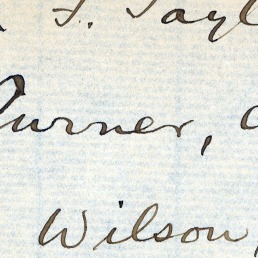 F. Tayl
Turner,
Wilson,